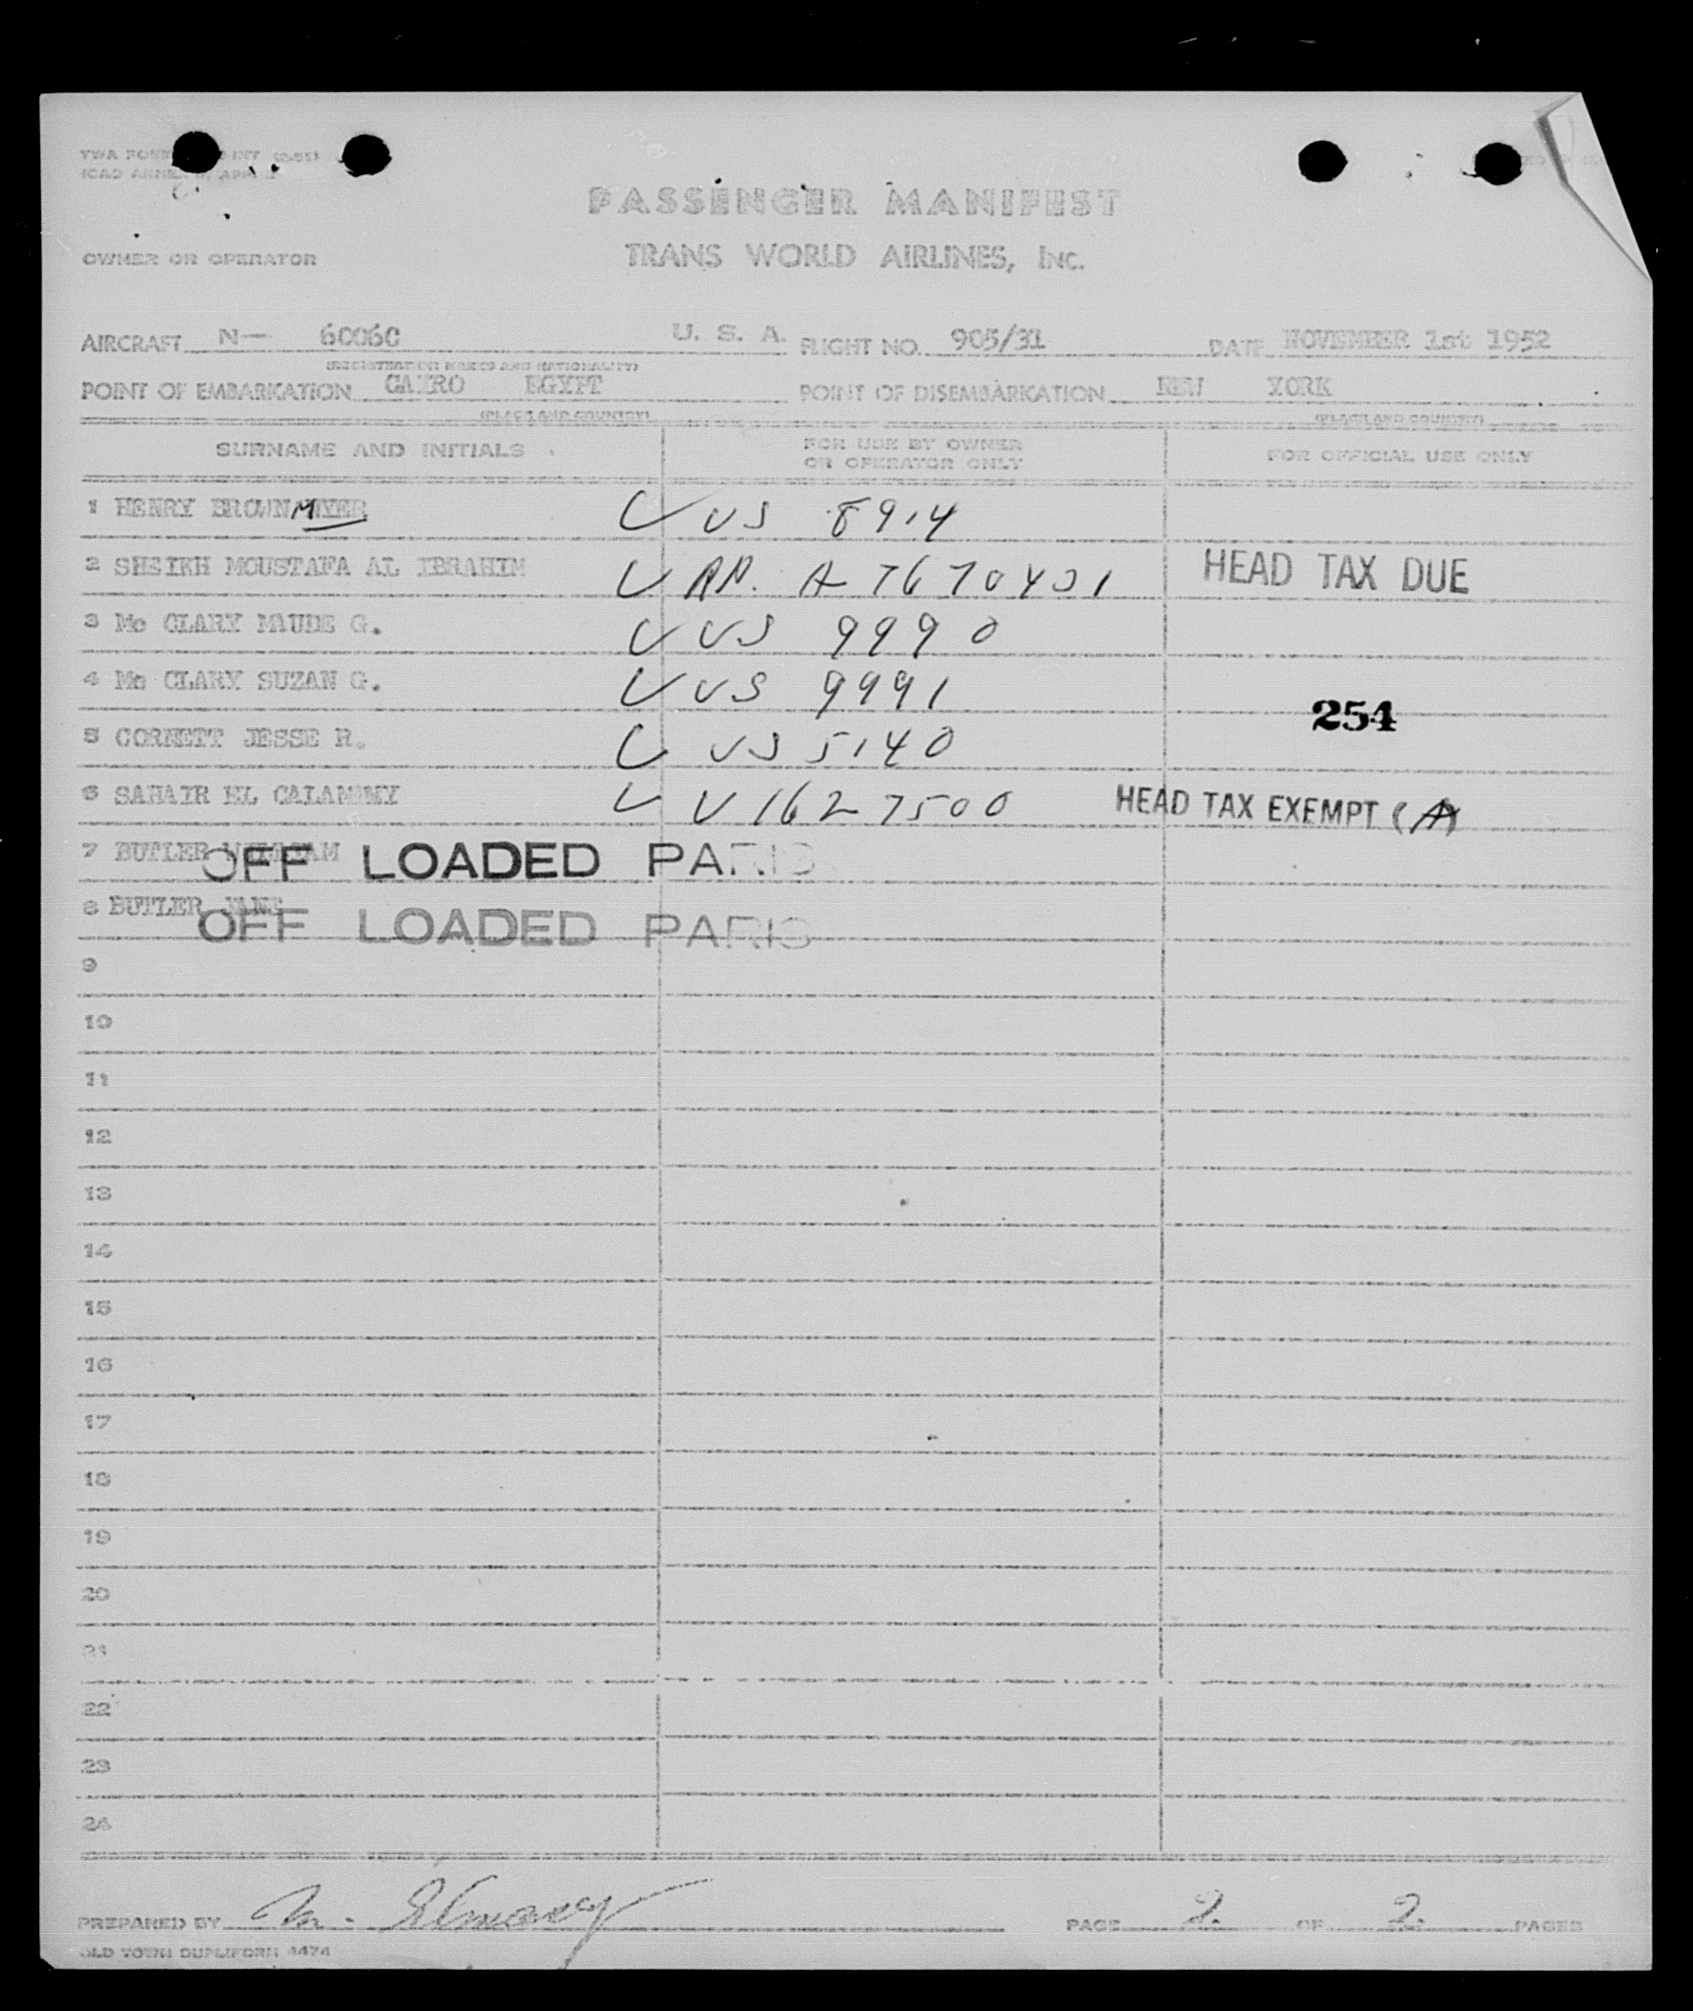 TWA FORM
ICAO ANNEX 9, APP
PASSENGER MANIFEST
OWNER OR OPERATOR TRANS WORLD AIRLINES, INC.
AIRCRAFT N— 6006C U. S. A. FLIGHT NO. 905/31 DATE NOVEMBER 1st 1952
(REGISTRATION MARKS AND NATIONALITY)
POINT OF EMBARKATION CAIRO EGYPT POINT OF DISEMBARKATION NEW YORK
(PLACE AND COUNTRY) (PLACE AND COUNTRY)
SURNAME AND INITIALS FOR USE BY OWNER OR OPERATOR ONLY FOR OFFICIAL USE ONLY
1 HENRY BROWNMYER US 8914
2 SHEIKH MOUSTAFA AL IBRAHIM A 7670431 HEAD TAX DUE
3 Mc CLARY MAUDE G. US 9990
4 Mc CLARY SUZAN G. US 9991
254
5 CORNETT JESSE R. US 5140
6 SAHAIR EL CALAMAWY V 1627500 HEAD TAX EXEMPT (A)
7 BUTLER WILLIAM
OFF LOADED PARIS
8 BUTLER JANE
OFF LOADED PARIS
9
10
11
12
13
14
15
16
17
18
19
20
21
22
23
24
PREPARED BY M. PAGE 2. OF 2. PAGES
OLD TOWN DUPLIFORM 4474